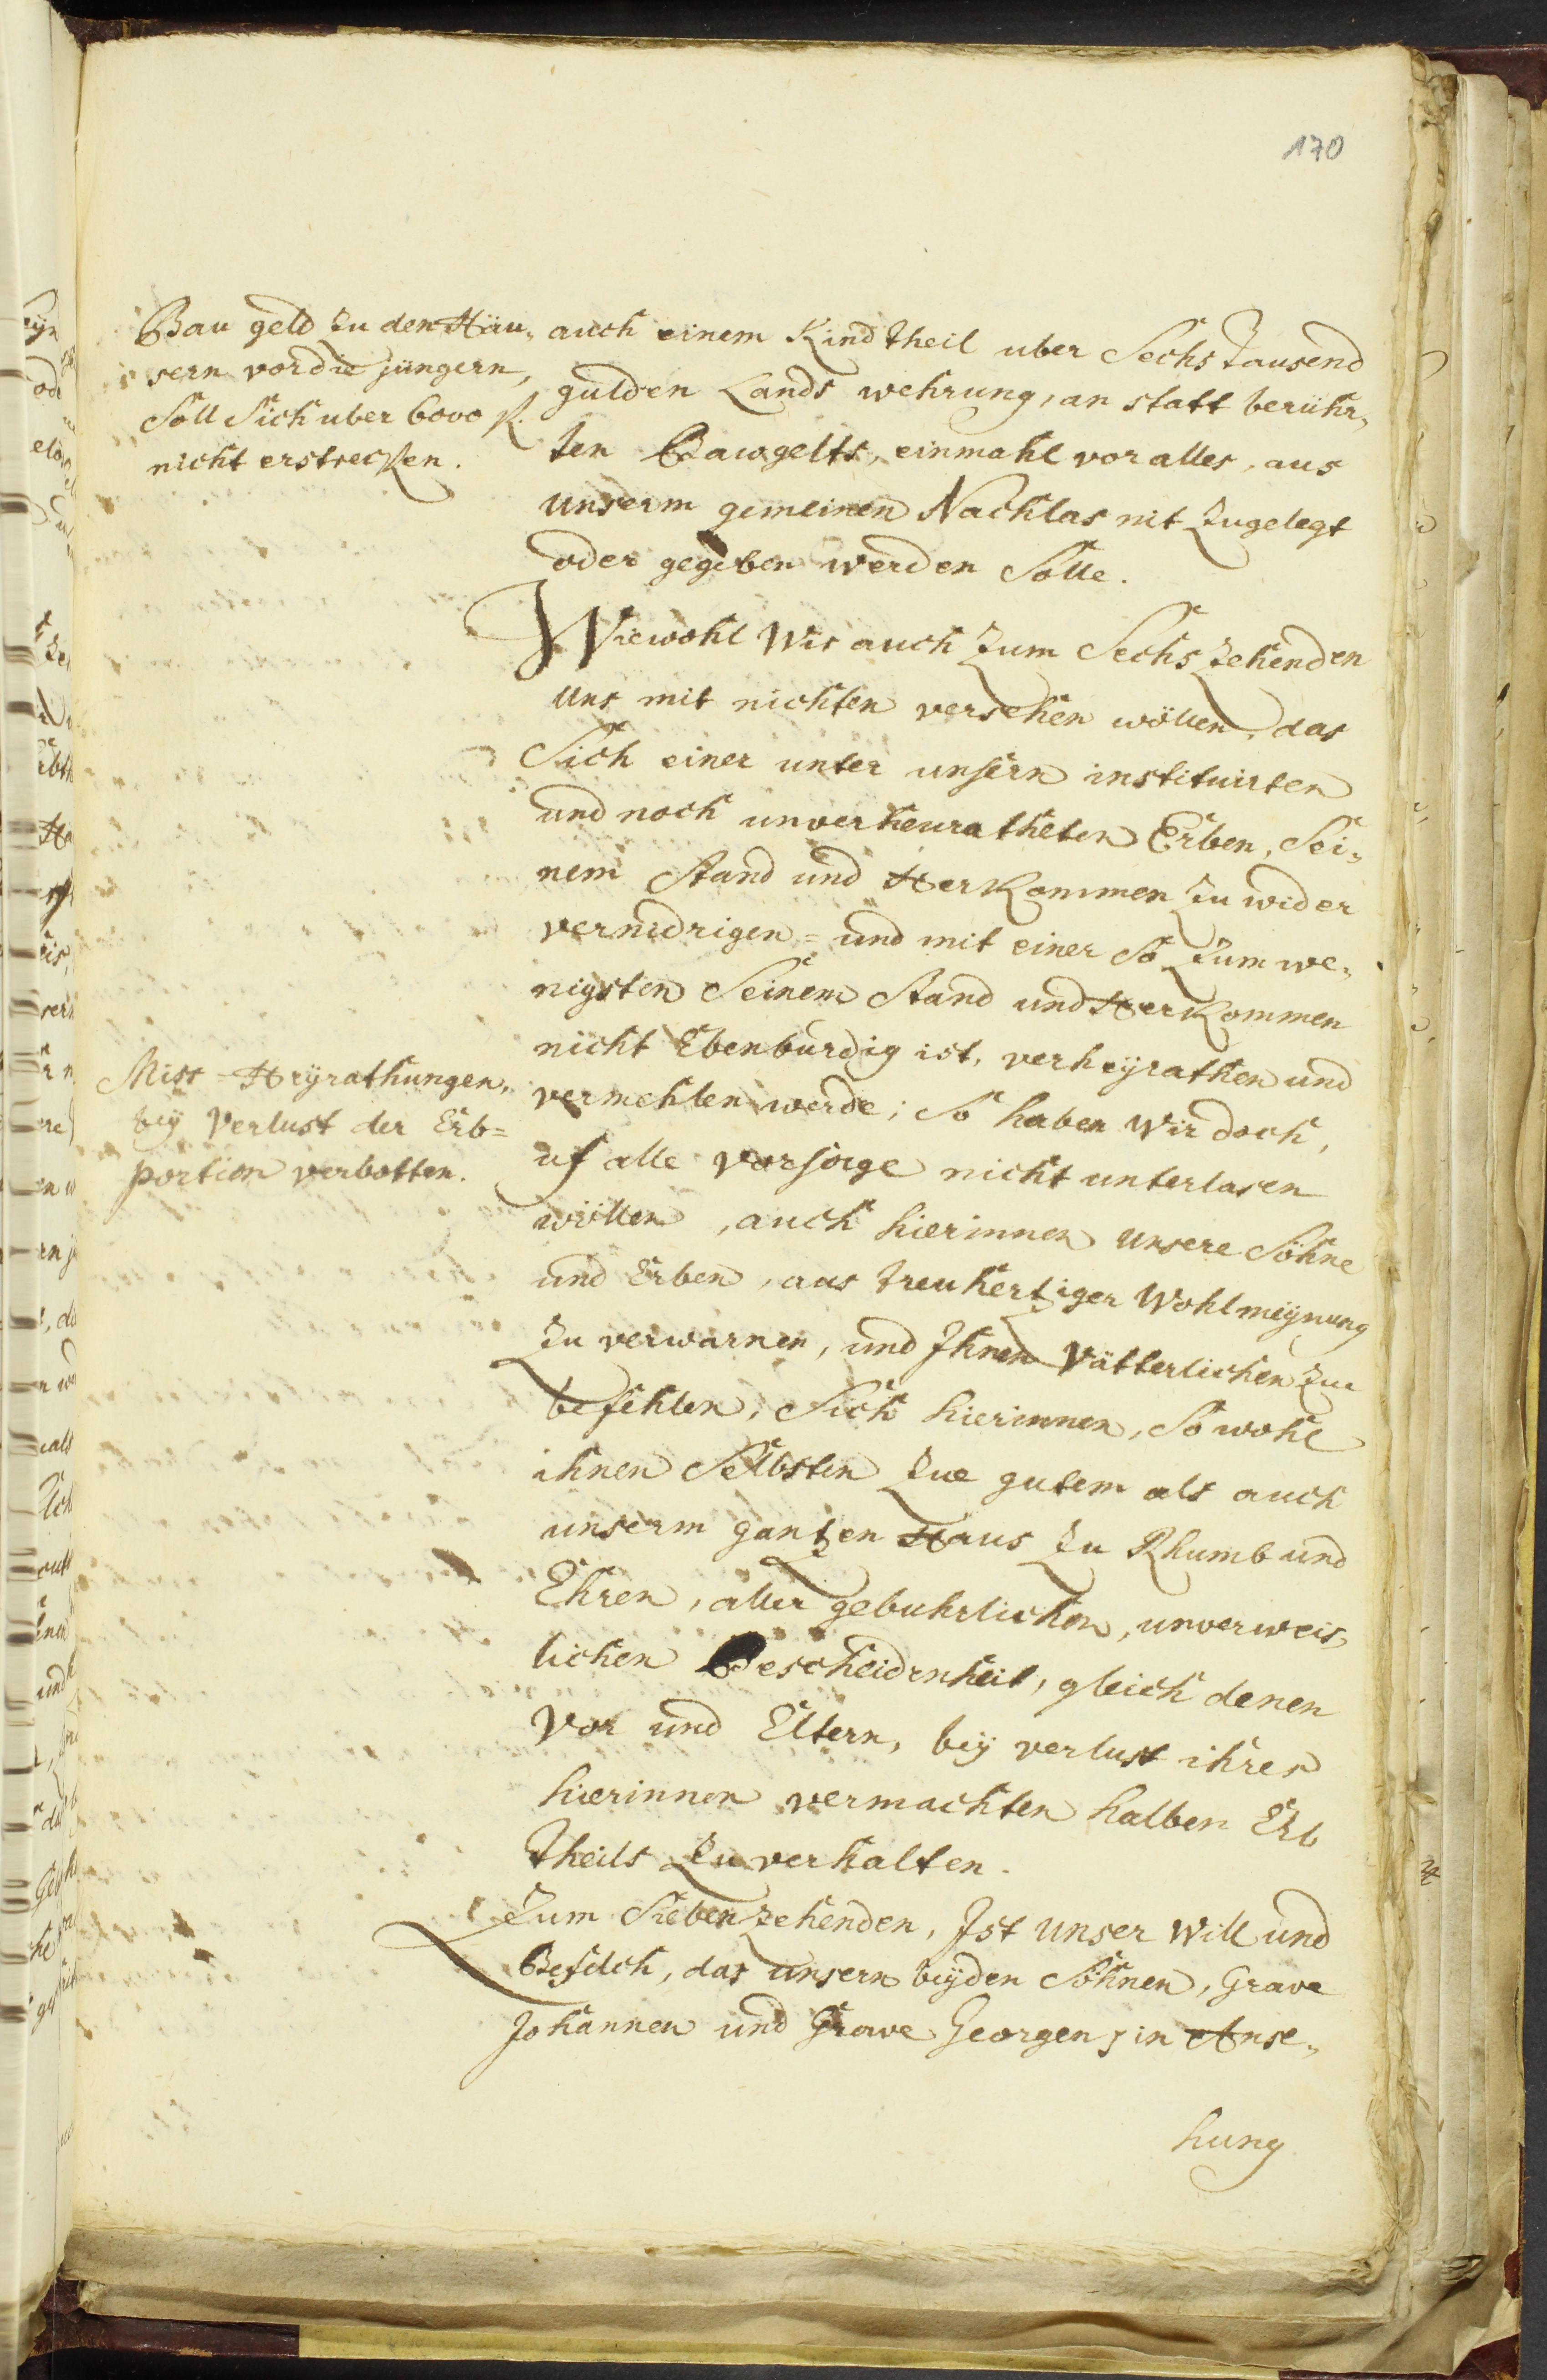 170
Bau geld zu den Häu„
sern vor die jüngern,
Soll Sich uber 6000 fl.
nicht erstrecken.
auch einem Kind theil uber Sechs Tausend
gulden Lands wehrung, an statt berühr„
ten Bawgelts, einmahl vor alles, aus
unserm gemeinen Nachlas nit zugelegt
oder gegeben werden Solle.
Wiewohl Wir auch zum Sechszehenden
Uns mit nichten versehen wöllen, das
Sich einer unter unsern instituirten
und noch unverheuratheten Erben, Sei„
nem Stand und Herkommen zu wider
vernidrigen= und mit einer So zum we„
nigsten Seinem Stand und Herkommen
nicht Ebenburdig ist, verheÿrathen und
vermehlen werde; So haben Wir doch,
uf alle vorsorge nicht unterlasen
wöllen, auch hierinnen Unsere Söhne
und Erben, aus treuhertziger Wohlmeÿnung
zu verwarnen, und Ihnen Vätterlichen zue
befehlen, Sich hierinnen, So wohl
ihnen Selbsten zue gutem als auch
unserm gantzen Haus zu Rhumb und
Ehren, aller gebuhrlichen, unverweis„
lichen Bescheidenheit, gleich denen
Vor und Eltern, beÿ verlust ihres
hierinnen vermachten halben Erb
theils zu verhalten.
Miss=Heÿrathungen,
beÿ Verlust der Erb=
portion verbotten.
Zum Siebenzehenden, Ist Unser Will und
Befelch, das unsern beÿden Söhnen, Grave
Johannen und Grave Georgen, in Anse„
hung